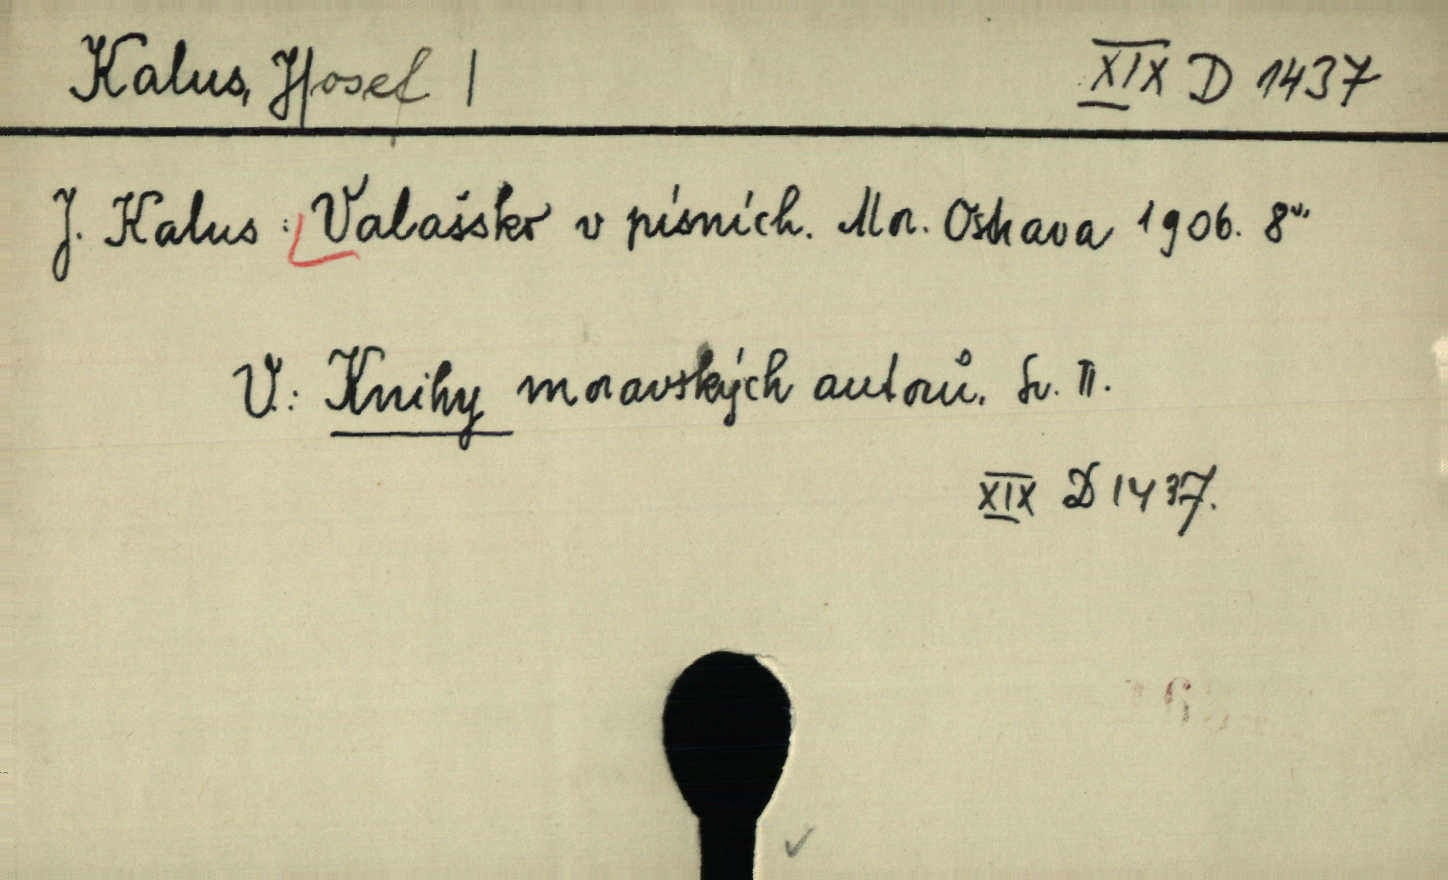 Kalus, Josef XIX D 1437
J. Kalus: Valašsko v písních. Mor. Ostrava 1906. 8°
V: Knihy moravských autorů. Sv. II.
XIX D 1437.